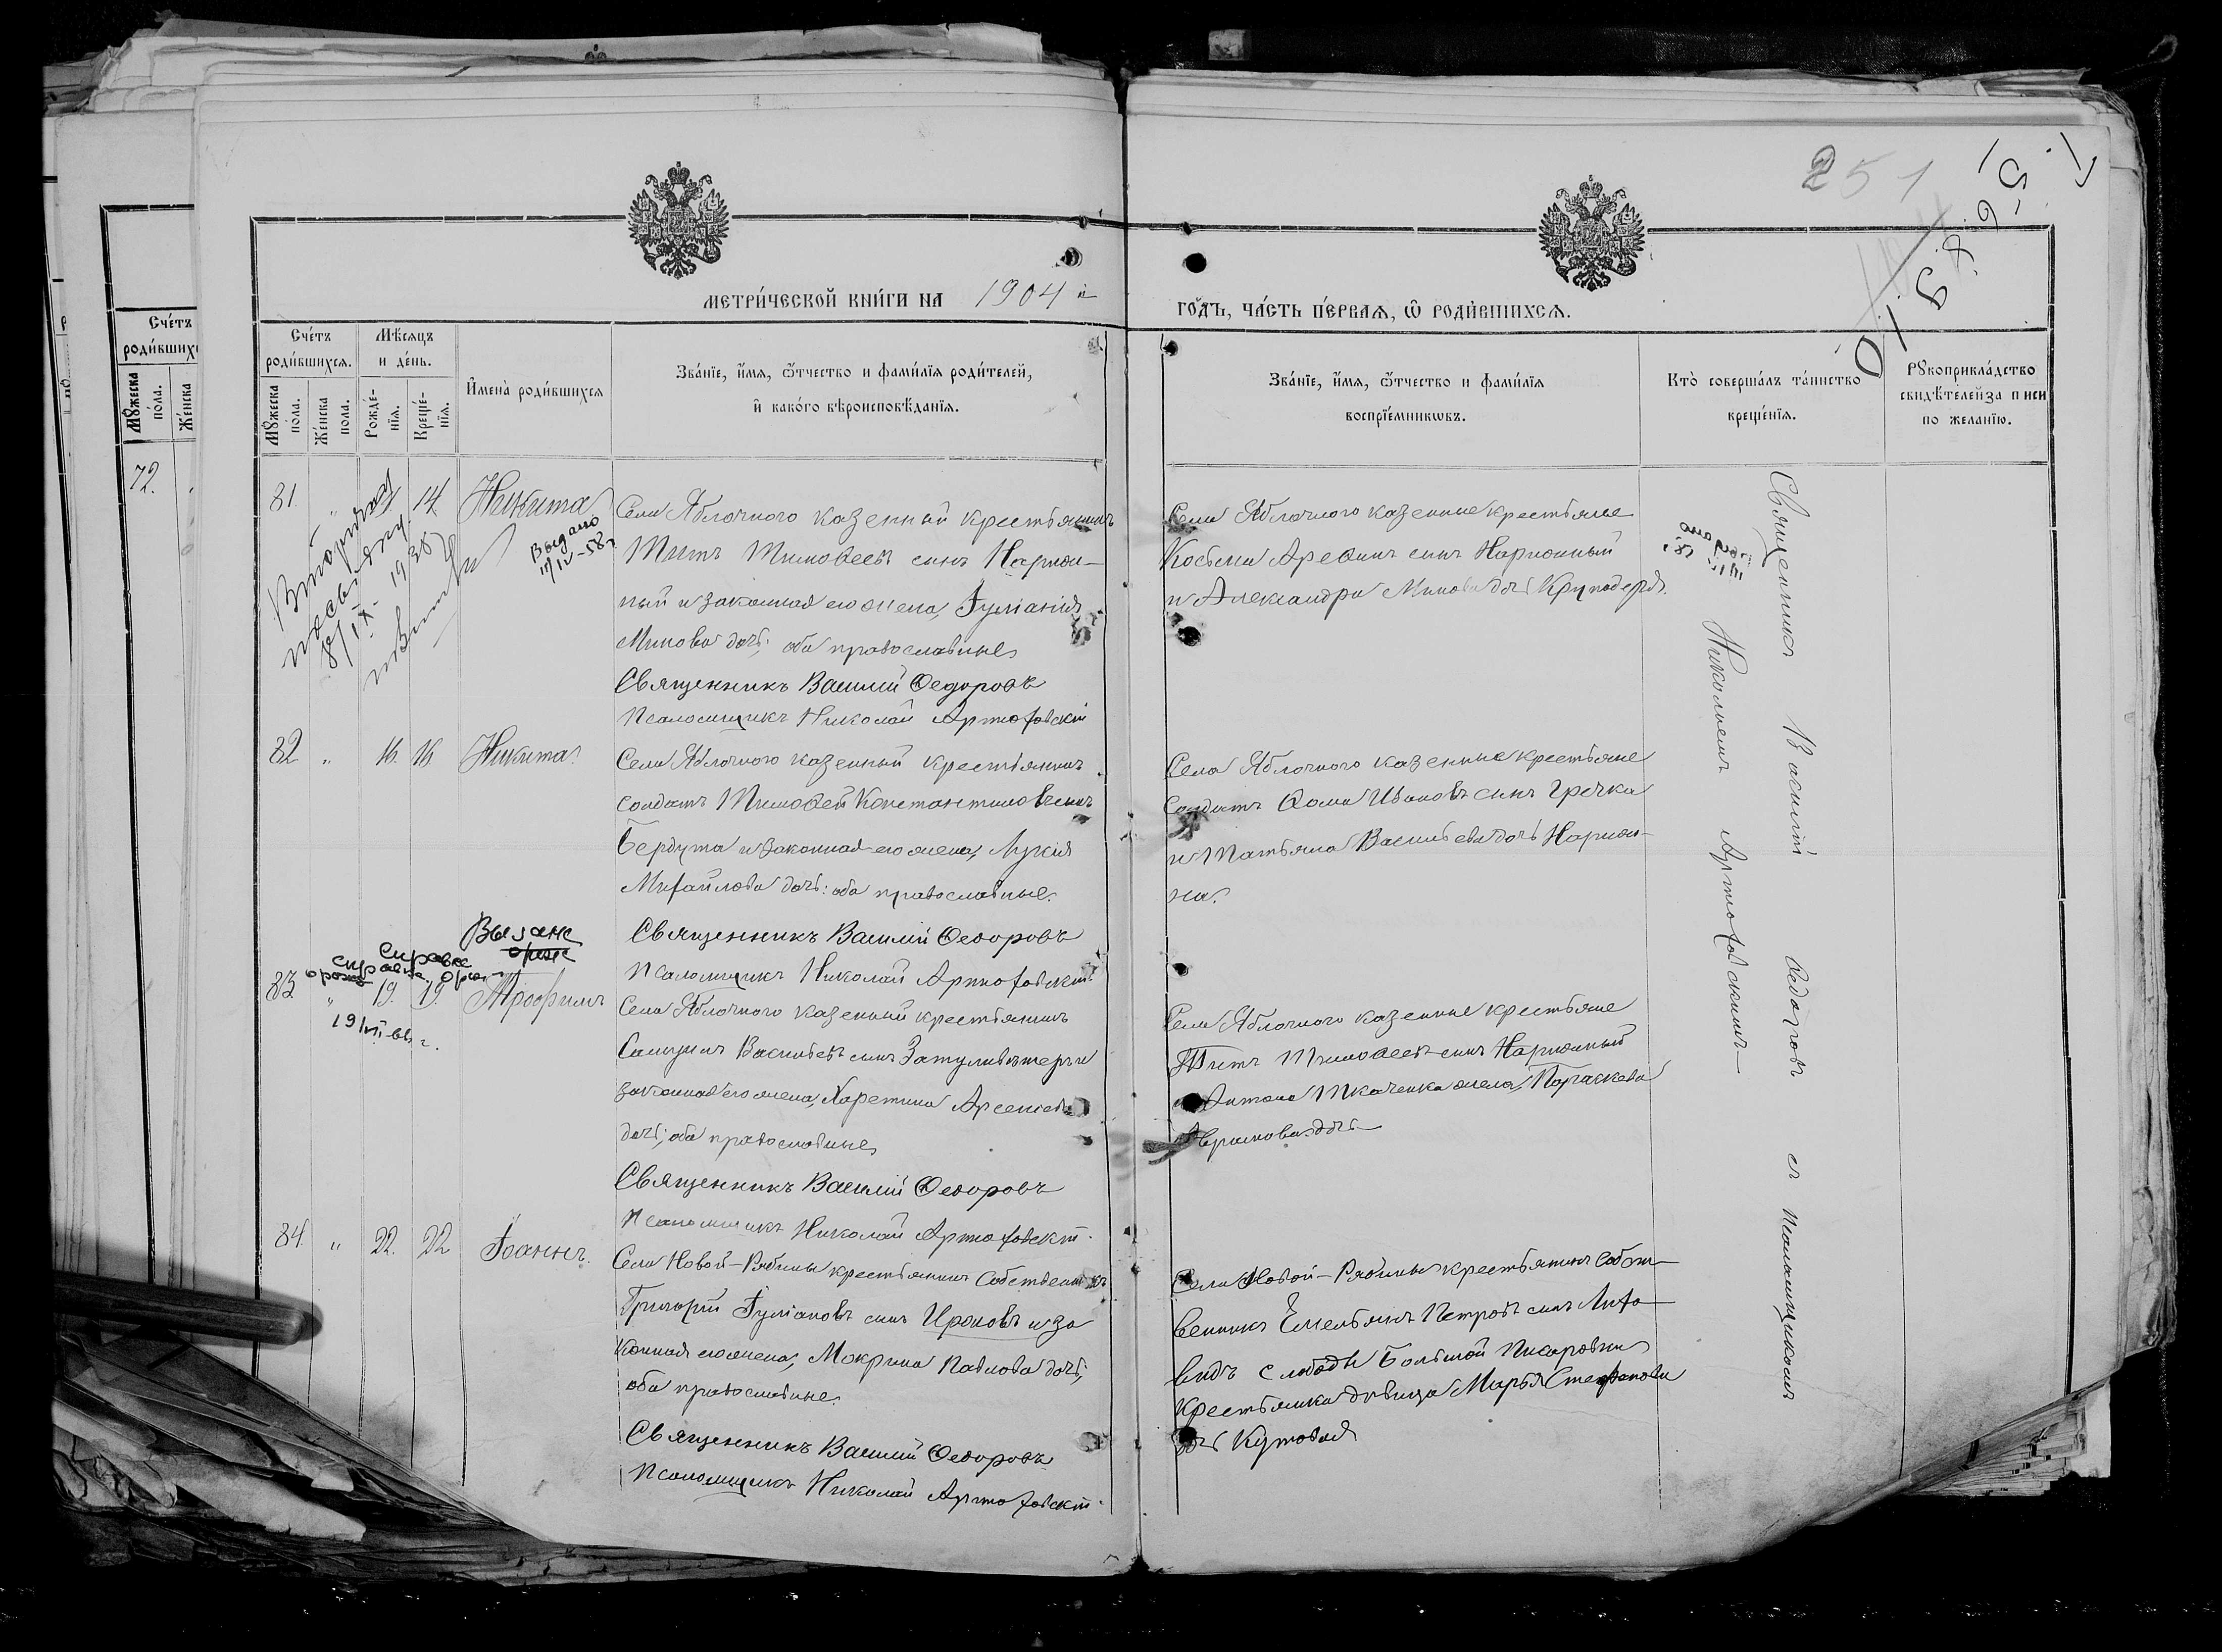 251
МЕТРИ́ЧЕСКОЙ КНИ́ГИ НА 1904 й
ГО́ДЪ, ЧА́СТЬ ПЕ́РВАЯ, Ѿ РОДИ́ВШИХСЯ.
Сче́тъ
роди́вших
Мꙋжеска по́ла.
Же́нска
72.
Сче́тъ роди́вшихся.
Мꙋжеска по́ла.
Же́нска по́ла.
Мѣ́сяцъ и де́нь.
Рожде́нїя.
Креще́нїя.
И҆мена̀ роди́вшихся
Зва́нїе, и҆́мя, ѻ҆́тчество и фами́лїя роди́телей,
и҆ како́го вѣроисповѣ́данїя.
Зва́нїе, и҆́мя, ѻ҆́тчество и фами́лїя
воспрїе́мникѡвъ.
Кто̀ соверша́лъ та́инство
креще́нїя.
Рꙋкоприкла́дство
свидѣ́телей за писи
по жела́нїю.
81. " 14. Никита
Выдано
IV-58г
Села Яблочного казенный крестьянинъ
Титъ Тимоѳеевъ сынъ Нарюж-
ный и законная его жена, Іуліанія
Минова дочь; оба православные
Священникъ Василій Ѳедоровъ
Псаломщикъ Николай Артюховскій
Села Яблочного казенные крестьяне
Косьма Арефинъ сынъ Нарюжный
и Александра Минова дочь Круподеря.
82 " 16. 16. Никита
Села Яблочного казенный крестьянинъ
солдатъ Тимоѳей Константиновъ сынъ
Бердута и законная его жена, Лукія
Михайлова дочь: оба православные.
Священникъ Василій Ѳедоровъ
Псаломщикъ Николай Артюховскій
Села Яблочного казенные крестьяне
солдатъ Ѳома Ивановъ сынъ Гречка
и Татьяна Васильева дочь Нарюж-
на.
справка
83 " 19. 19. Трофимъ
Села Яблочного казенный крестьянинъ
Васильевъ сынъ Затуливѣтеръ и
законная его жена, Харетина Арсеніева
дочь; оба православные
Священникъ Василій Ѳедоровъ
Псаломщикъ Николай Артюховскій
Села Яблочного казенные крестьяне
Титъ Тимоѳеевъ сынъ Нарюжный
и Антона Ткаченка жена, Параскева
Аврамова дочь
84. " 22. 22 Іоаннъ.
Села Новой-Рябины крестьянинъ собственникъ
Григорій Іуліановъ сынъ Ироновъ и за
конная его жена, Мокрина Павлова дочь;
оба православные.
Священникъ Василій Ѳедоровъ
Псаломщикъ Николай Артюховскій
Села Новой-Рябины крестьянинъ собст-
венникъ Емельянъ Петровъ сынъ Лихо
видъ слободы Большой Писаровки
крестьянка дѣвица Марья Стефанова
дочь Кутовая
Священникъ Василій Ѳедоровъ съ псаломщикомъ
Николаемъ Артюховскимъ